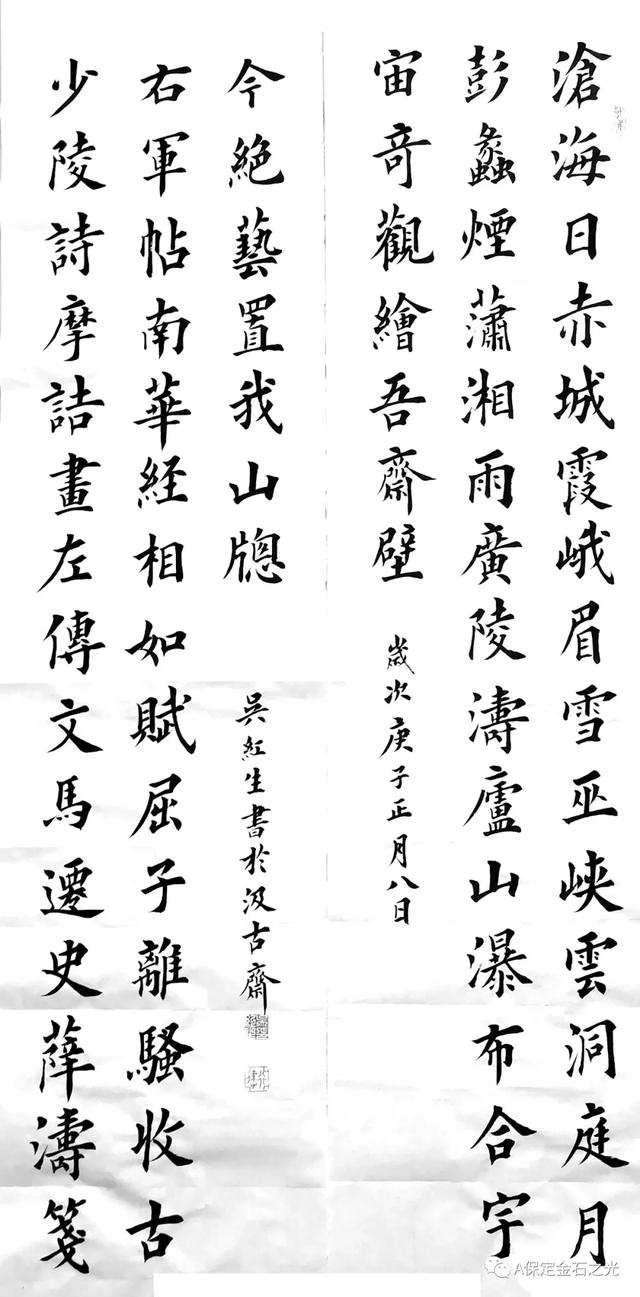 滄海日赤城霞峨眉雪巫峽雲洞庭月
彭蠡煙瀟湘雨廣陵濤廬山瀑布合宇
宙竒觀繪吾齋壁
歲次庚子正月八日
少陵詩摩詰畫左傳文馬遷史薛濤箋
右軍帖南華経相如賦屈子離騷收古
今絶藝置我山牕
吳紅生書於汲古齋
A保定金石之光